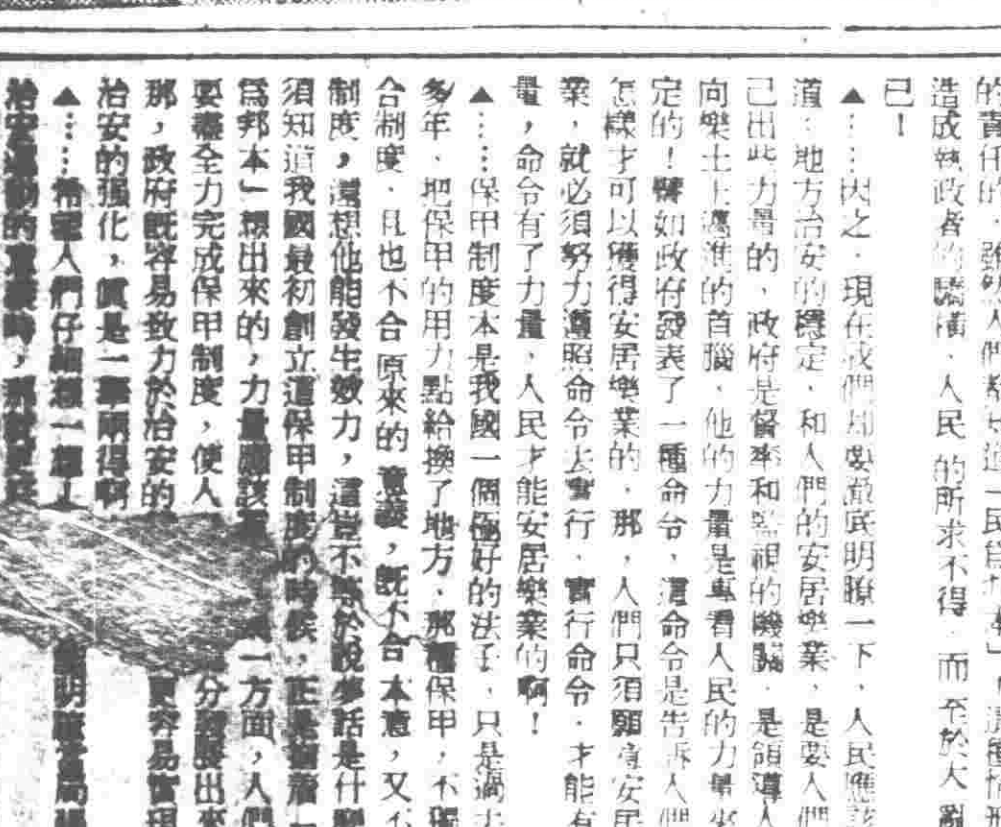 的責任的
造成執政者的驕橫、人民的所求不得、而至於大亂
已！
▲……因之、現在我們却要徹底明瞭一下、人民應該
道：地方治安的穩定、和人們的安居樂業、是要人們
己出此力量的、政府是督率和監視的機關、是領導人
向樂土上邁進的首腦、他的力量是專看人民的力量來
定的！譬如政府發表了一種命令、這命令是告訴人們
怎樣才可以獲得安居樂業的、那、人們只須願意安居
業、就必須努力遵照命令去實行、實行命令、才能有
量，命令有了力量、人民才能安居樂業的啊！
▲……保甲制度本是我國一個極好的法子、只是過去
多年、把保甲的用力點給換了地方、那種保甲，不
合制度、且也不合原來的意義，既不合本意，又不
制度，還想他能發生效力，這豈不等於說夢話是什麼
須知道我國最初創立這保甲制度的時候，正是
爲邦本」想出來的，力量應該 一方面，人們
要盡全力完成保甲制度，使人 分發出來
那，政府既容易致力於治安的 更容易實現
治安的强化，眞是一舉兩得啊
▲……希望人們仔細想一想！ 明瞭
治安運動的意義時，那